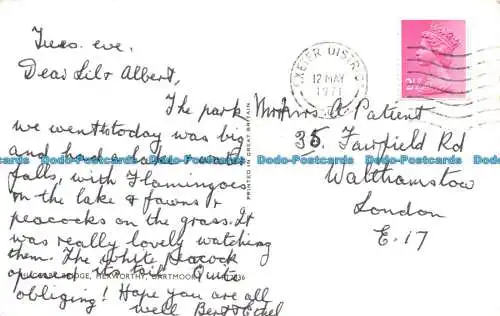 Tues. eve.
Dear Lil & Albert,
The park
we went to today was big
and had a lake & water
falls, with Flamingoes
on the lake & fawns &
peacocks on the grass. It
was really lovely watching
them. The white peacock
opened its tail. Quite
obliging! Hope you are all
well Bert & Ethel
HEXWORTHY, DARTMOOR
PRINTED IN GREAT BRITAIN
EXETER DISTR
12 MAY
1971
2½
Mr & Mrs A Patient
35 Fairfield Rd
Walthamstow
London
E.17
Dodo-Postcards Dodo-Postcards Dodo-Postcards Dodo-Postcards